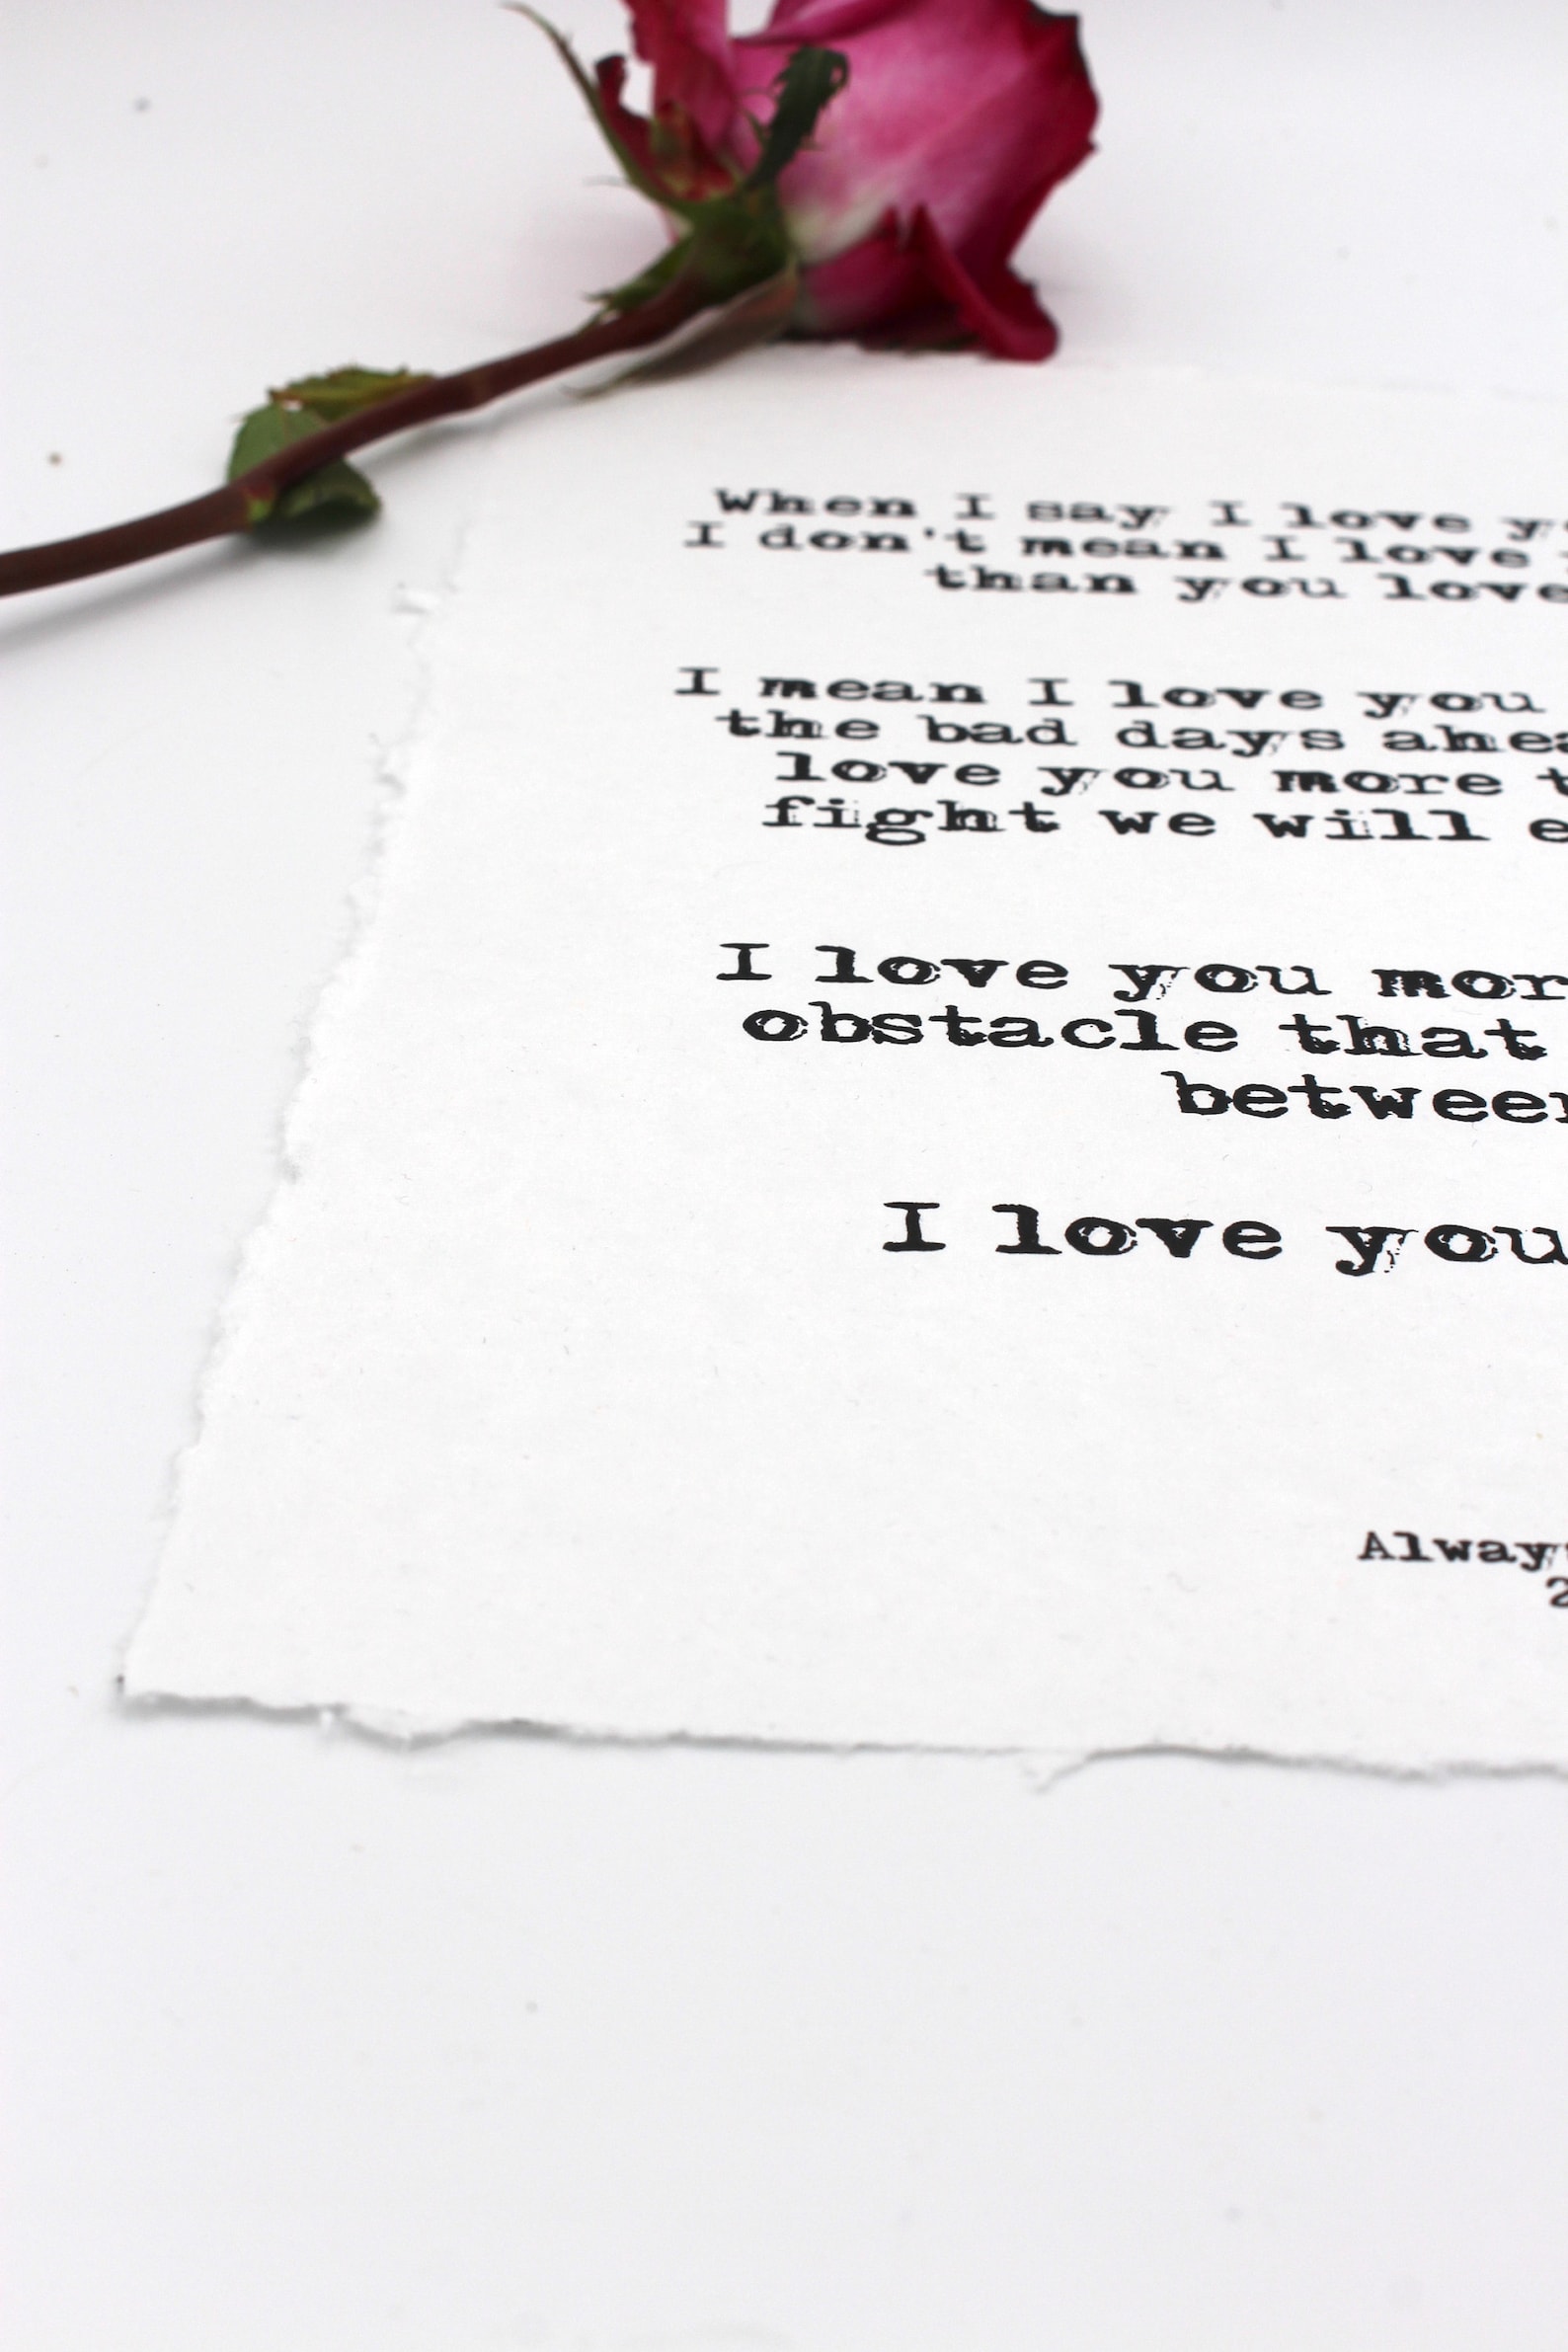 When I say I love y
I don't mean I love
than you love
I mean I love you
the bad days ahea
love you more t
fight we will e
I love you mor
obstacle that
between
I love you
Always
2